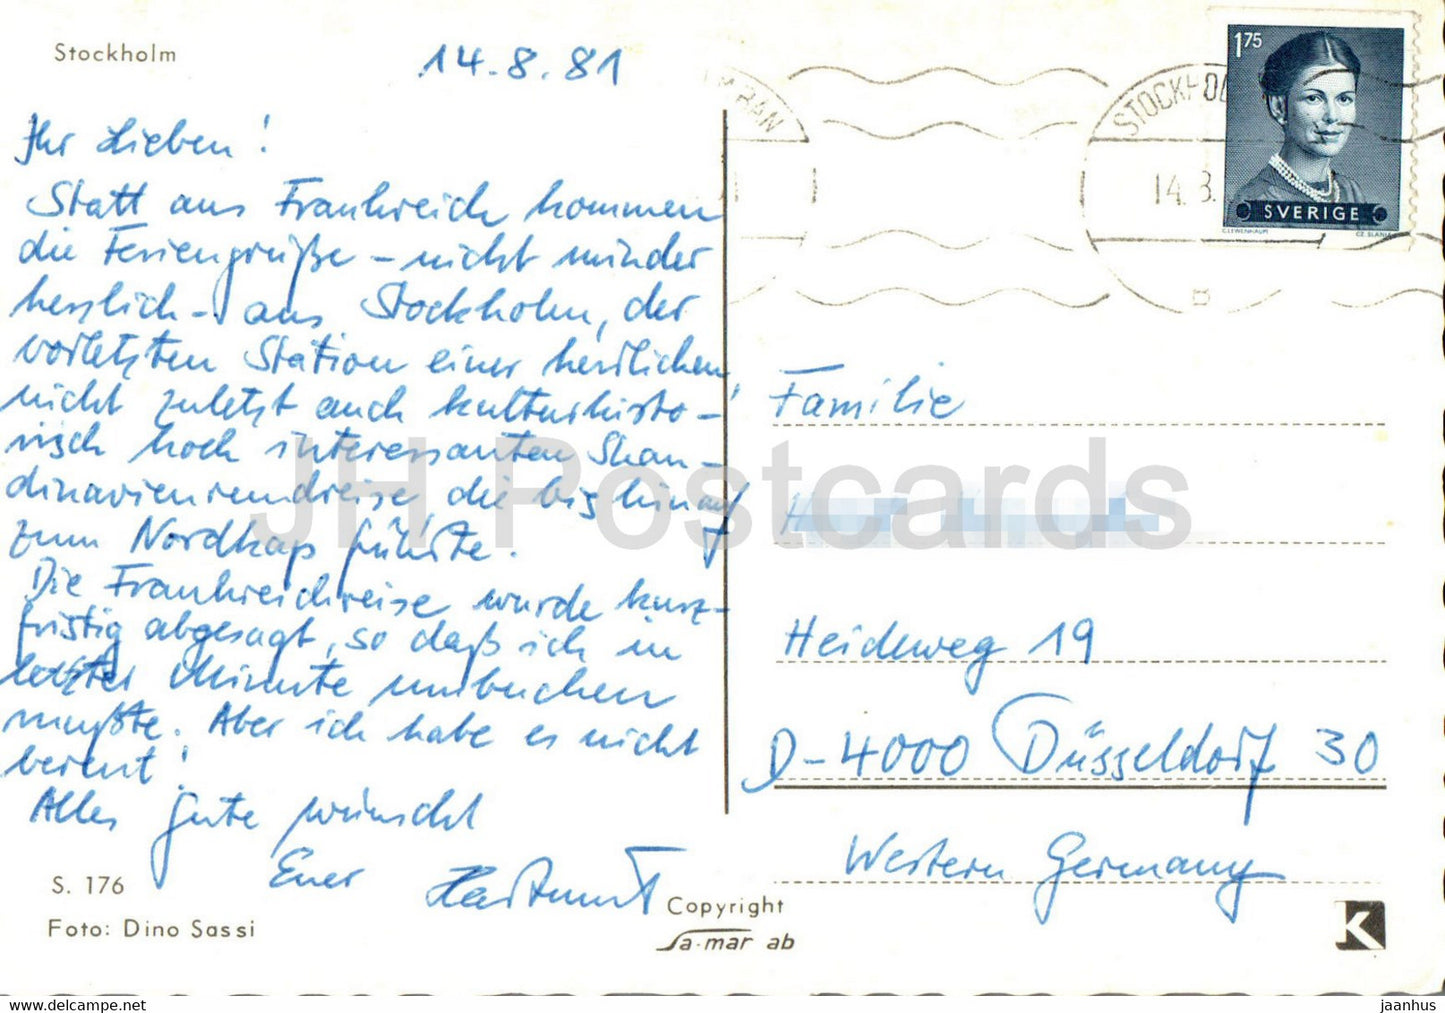 Stockholm
14.8.81
Ihr Lieben!
Statt aus Frankreich kommen
die Feriengrüße – nicht minder
herzlich – aus Stockholm, der
vorletzten Station einer herrlichen,
nicht zuletzt auch kulturhisto-
risch hoch interessanten Skan-
dinavienrundreise die bis hinauf
zum Nordkap führte.
Die Frankreichreise wurde kurz-
fristig abgesagt, so daß ich in
letzter Minute umbuchen
mußte. Aber ich habe es nicht
bereut!
Alles Gute wünscht
Euer Hartmut
S. 176
Foto: Dino Sassi
Copyright
Sa-mar ab
STOCKHOL
14.8.
175
SVERIGE
CLEWENHAUM CZ SLANIA
Familie
Heideweg 19
D-4000 Düsseldorf 30
Western Germany
K
JH Postcards
https://www.delcampe.net
jaanhus